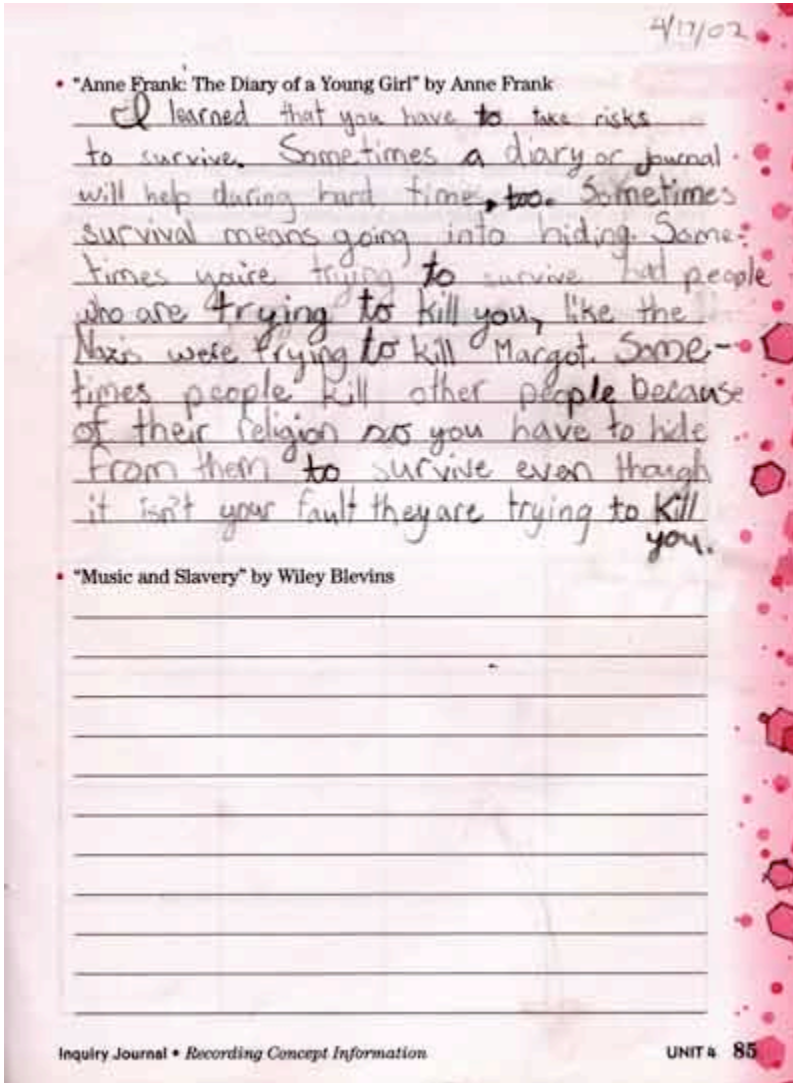 4/17/02
• "Anne Frank: The Diary of a Young Girl" by Anne Frank
I learned that you have to take risks
to survive. Sometimes a diary or journal
will help during hard times, too. Sometimes
survival means going into hiding. Some-
times you're trying to survive bad people
who are trying to kill you, like the
Nazis were trying to kill Margot. Some-
times people kill other people because
of their religion so you have to hide
from them to survive even though
it isn't your fault they are trying to kill
you.
• "Music and Slavery" by Wiley Blevins
Inquiry Journal • Recording Concept Information UNIT 4 85